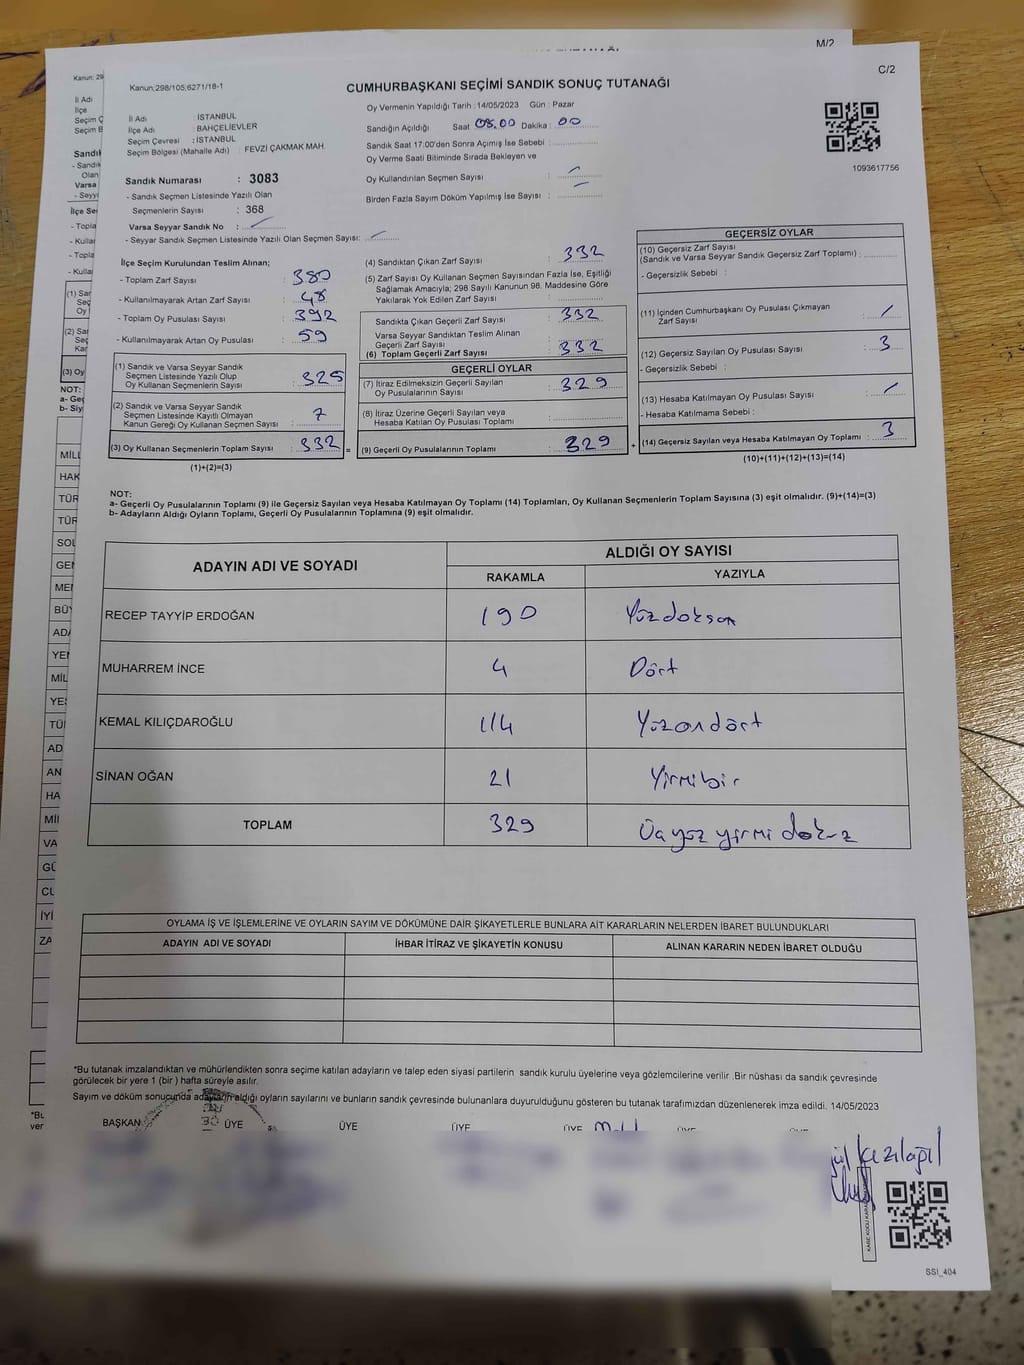 M/2
C/2
Kanun; 29
İl Adı
İlçe
Seçim Ç
Seçim B
Kanun;298/105,6271/18-1
CUMHURBAŞKANI SEÇİMİ SANDIK SONUÇ TUTANAĞI
İl Adı : İSTANBUL
İlçe Adı : BAHÇELİEVLER
Seçim Çevresi : İSTANBUL
Seçim Bölgesi (Mahalle Adı) : FEVZİ ÇAKMAK MAH.
Oy Vermenin Yapıldığı Tarih : 14/05/2023 Gün : Pazar
Sandığın Açıldığı Saat 08.00 Dakika : 00
Sandık Saat 17.00'den Sonra Açımış İse Sebebi :
Oy Verme Saati Bitiminde Sırada Bekleyen ve
Oy Kullandırılan Seçmen Sayısı :
Birden Fazla Sayım Döküm Yapılmış İse Sayısı :
1093617756
Sandık Numarası : 3083
- Sandık Seçmen Listesinde Yazılı Olan
Seçmenlerin Sayısı : 368
Varsa Seyyar Sandık No :
- Seyyar Sandık Seçmen Listesinde Yazılı Olan Seçmen Sayısı:
İlçe Seçim Kurulundan Teslim Alınan;
- Toplam Zarf Sayısı : 380
- Kullanılmayarak Artan Zarf Sayısı : 48
- Toplam Oy Pusulası Sayısı : 392
- Kullanılmayarak Artan Oy Pusulası : 59
(1) Sandık ve Varsa Seyyar Sandık
Seçmen Listesinde Yazılı Olup
Oy Kullanan Seçmenlerin Sayısı : 325
(2) Sandık ve Varsa Seyyar Sandık
Seçmen Listesinde Kayıtlı Olmayan
Kanun Gereği Oy Kullanan Seçmen Sayısı : 7
(3) Oy Kullanan Seçmenlerin Toplam Sayısı : 332
(1)+(2)=(3)
(4) Sandıktan Çıkan Zarf Sayısı : 332
(5) Zarf Sayısı Oy Kullanan Seçmen Sayısından Fazla İse, Eşitliği
Sağlamak Amacıyla; 298 Sayılı Kanunun 98. Maddesine Göre
Yakılarak Yok Edilen Zarf Sayısı :
Sandıkta Çıkan Geçerli Zarf Sayısı : 332
Varsa Seyyar Sandıktan Teslim Alınan
Geçerli Zarf Sayısı
(6) Toplam Geçerli Zarf Sayısı : 332
GEÇERLİ OYLAR
(7) İtiraz Edilmeksizin Geçerli Sayılan
Oy Pusulalarının Sayısı : 329
(8) İtiraz Üzerine Geçerli Sayılan veya
Hesaba Katılan Oy Pusulası Toplamı :
= (9) Geçerli Oy Pusulalarının Toplamı : 329 +
GEÇERSİZ OYLAR
(10) Geçersiz Zarf Sayısı
(Sandık ve Varsa Seyyar Sandık Geçersiz Zarf Toplamı) :
- Geçersizlik Sebebi :
(11) İçinden Cumhurbaşkanı Oy Pusulası Çıkmayan
Zarf Sayısı : /
(12) Geçersiz Sayılan Oy Pusulası Sayısı : 3
- Geçersizlik Sebebi :
(13) Hesaba Katılmayan Oy Pusulası Sayısı : /
- Hesaba Katılmama Sebebi :
(14) Geçersiz Sayılan veya Hesaba Katılmayan Oy Toplamı : 3
(10)+(11)+(12)+(13)=(14)
NOT:
a- Geçerli Oy Pusulalarının Toplamı (9) ile Geçersiz Sayılan veya Hesaba Katılmayan Oy Toplamı (14) Toplamları, Oy Kullanan Seçmenlerin Toplam Sayısına (3) eşit olmalıdır. (9)+(14)=(3)
b- Adayların Aldığı Oyların Toplamı, Geçerli Oy Pusulalarının Toplamına (9) eşit olmalıdır.
ADAYIN ADI VE SOYADI ALDIĞI OY SAYISI
RAKAMLA YAZIYLA
RECEP TAYYİP ERDOĞAN 190 Yüzdoksan
MUHARREM İNCE 4 Dört
KEMAL KILIÇDAROĞLU 114 Yüzondört
SİNAN OĞAN 21 Yirmibir
TOPLAM 329 Üçyüz yirmi dokuz
OYLAMA İŞ VE İŞLEMLERİNE VE OYLARIN SAYIM VE DÖKÜMÜNE DAİR ŞİKAYETLERLE BUNLARA AİT KARARLARIN NELERDEN İBARET BULUNDUKLARI
ADAYIN ADI VE SOYADI İHBAR İTİRAZ VE ŞİKAYETİN KONUSU ALINAN KARARIN NEDEN İBARET OLDUĞU
*Bu tutanak imzalandıktan ve mühürlendikten sonra seçime katılan adayların ve talep eden siyasi partilerin sandık kurulu üyelerine veya gözlemcilerine verilir .Bir nüshası da sandık çevresinde
görülecek bir yere 1 (bir ) hafta süreyle asılır.
Sayım ve döküm sonucunda adayların aldığı oyların sayılarını ve bunların sandık çevresinde bulunanlara duyurulduğunu gösteren bu tutanak tarafımızdan düzenlenerek imza edildi. 14/05/2023
BAŞKAN ÜYE ÜYE ÜYE ÜYE
SSI_404